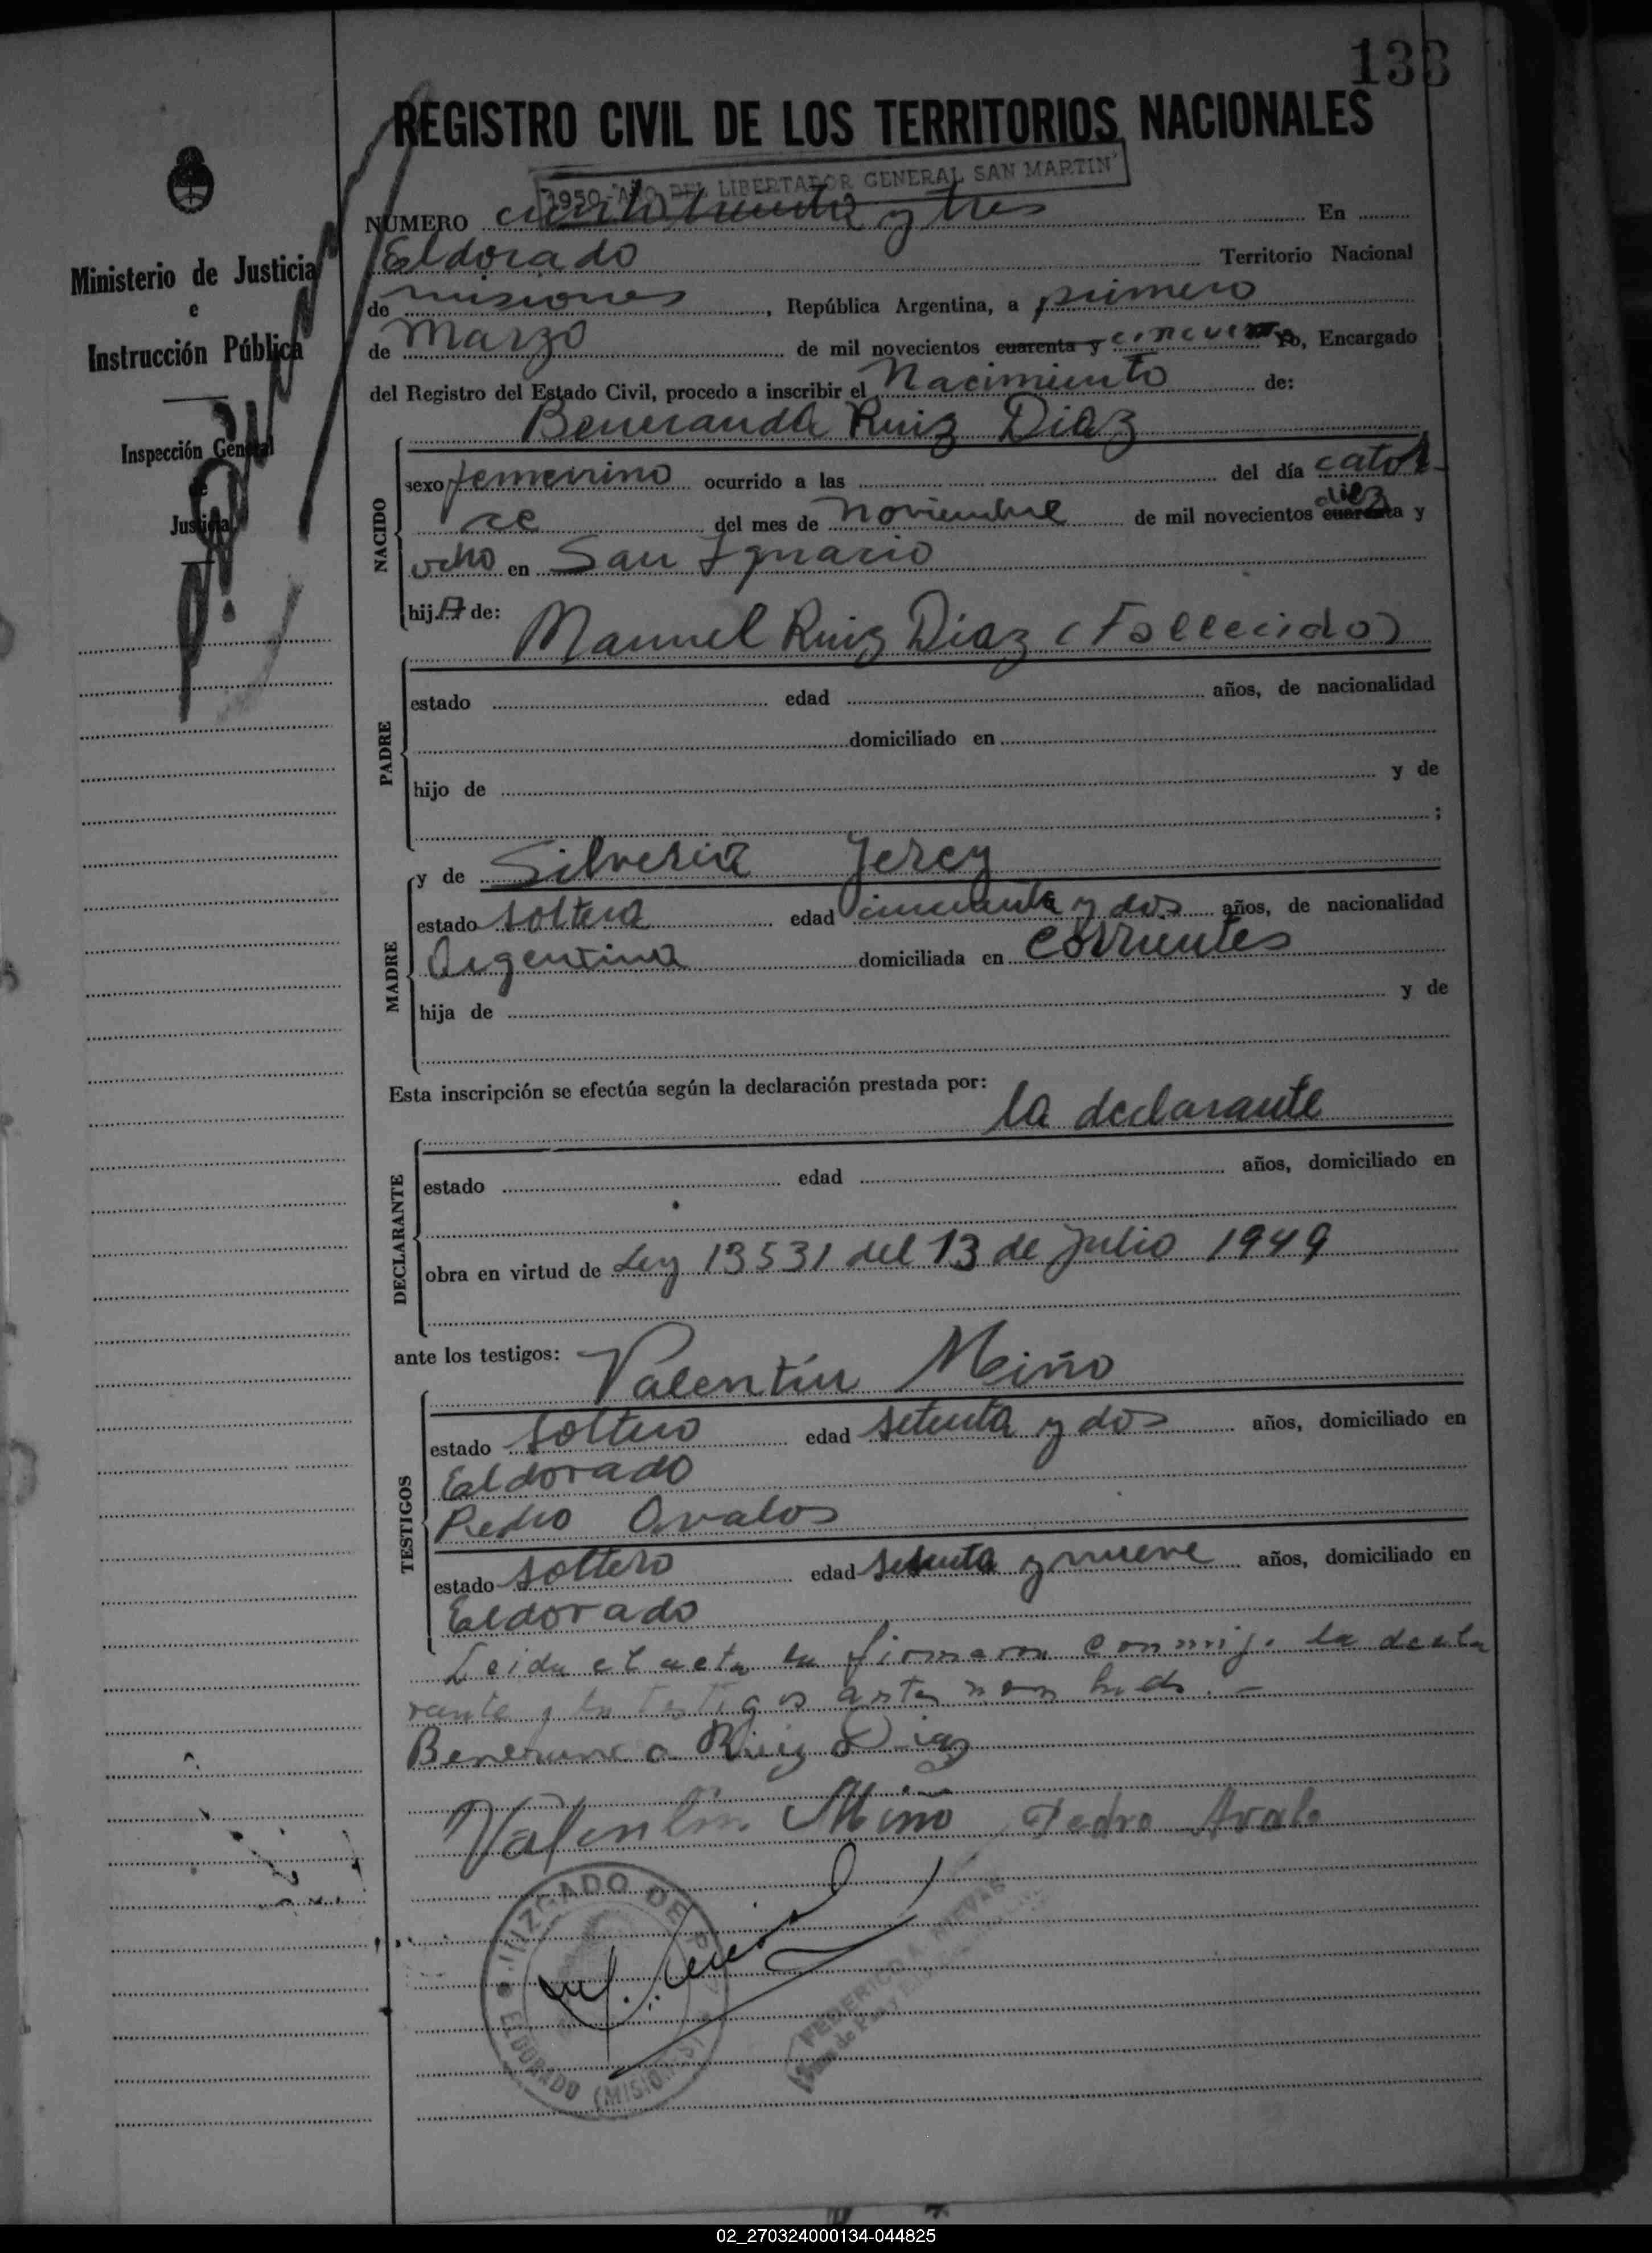 133
REGISTRO CIVIL DE LOS TERRITORIOS NACIONALES
1950-"AÑO DEL LIBERTADOR GENERAL SAN MARTIN"
Ministerio de Justicia
e
Instrucción Pública
Inspección General
de
Justicia
NUMERO ciento treinta y tres En
Eldorado Territorio Nacional
de misiones, República Argentina, a primero
de Marzo de mil novecientos cuarenta y cincuenta Yo, Encargado
del Registro del Estado Civil, procedo a inscribir el Nacimiento de:
Beneranda Ruiz Diaz
NACIDO
sexo femenino ocurrido a las del día cator
ce del mes de noviembre de mil novecientos cuarenta diez y
ocho en San Ignacio
hijA de:
Manuel Ruiz Diaz (Fallecido)
PADRE
estado edad años, de nacionalidad
domiciliado en
hijo de y de
;
y de Silveria Jerez
MADRE
estado soltera edad cincuenta y dos años, de nacionalidad
Argentina domiciliada en Corrientes
hija de y de
Esta inscripción se efectúa según la declaración prestada por:
la declarante
DECLARANTE
estado edad años, domiciliado en
obra en virtud de Ley 13531 del 13 de Julio 1949
ante los testigos:
Valentín Miño
TESTIGOS
estado soltero edad setenta y dos años, domiciliado en
Eldorado
Pedro Avalos
estado soltero edad y nueve años, domiciliado en
Eldorado
Leida el acta la firman conmigo la decla
rante y los testigos
Ruiz Diaz
Valentin Miño Pedro Avalo
JUZGADO DE PAZ
ELDORADO (MISIONES)
FEDERICO A. NEVAR